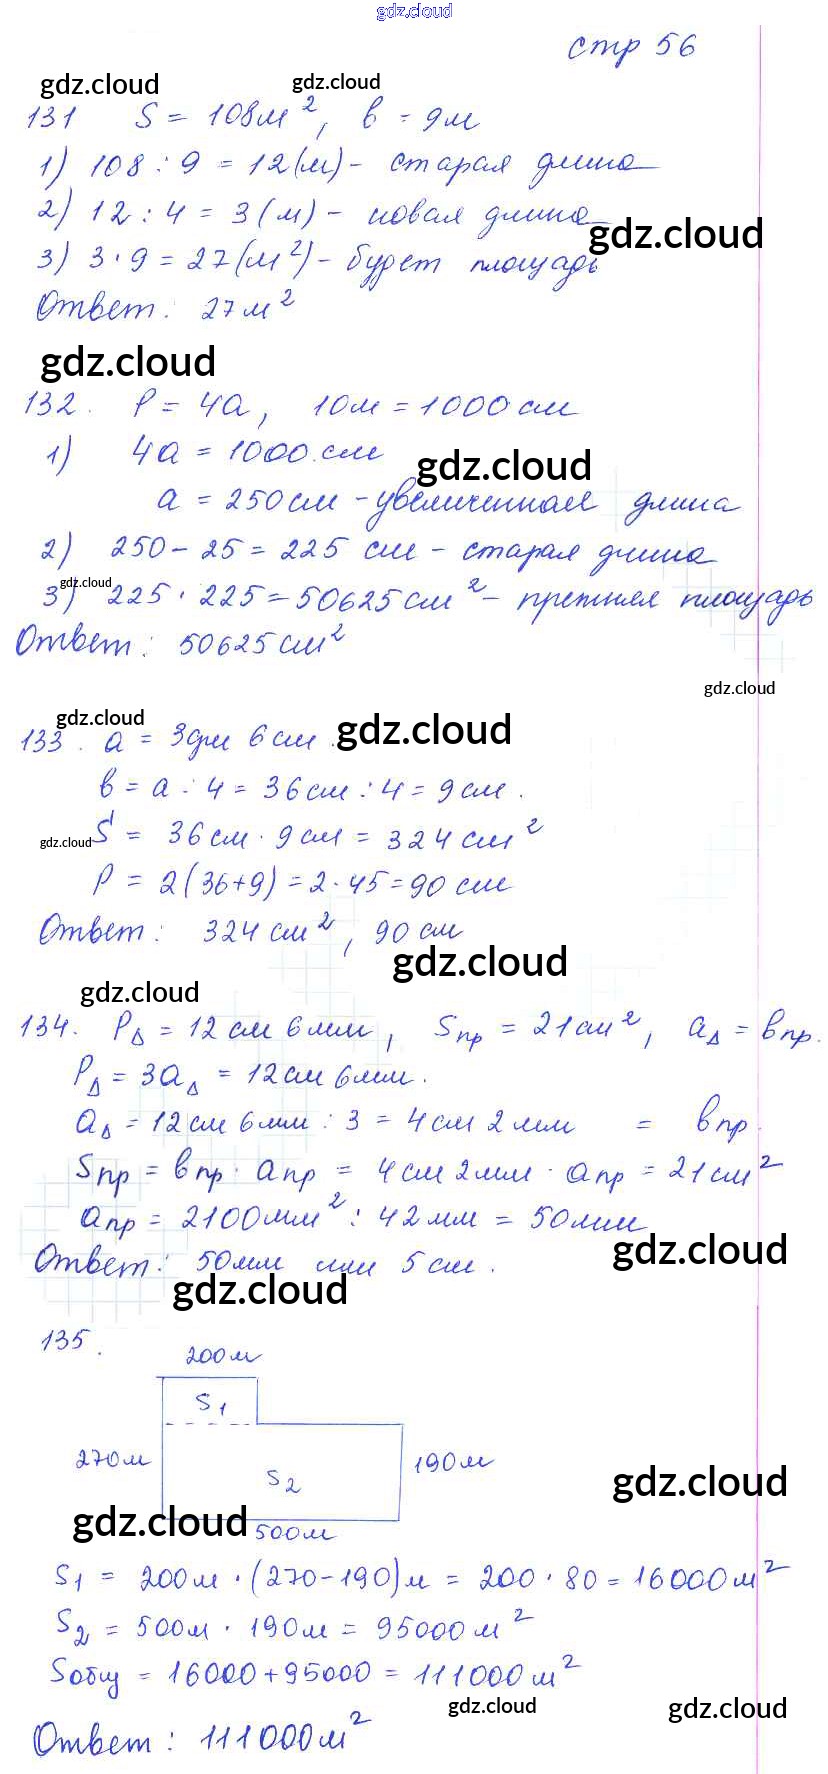 gdz.cloud
стр 56
gdz.cloud gdz.cloud
131 S = 108м², в = 9м
1) 108 : 9 = 12(м) - старая длина
2) 12 : 4 = 3(м) - новая длина
gdz.cloud
3) 3 · 9 = 27(м²) - будет площадь
Ответ: 27м²
gdz.cloud
132. P = 4a, 10м = 1000см
1) 4a = 1000.см
gdz.cloud
a = 250см - увеличенная длина
2) 250 - 25 = 225 см - старая длина
gdz.cloud
3) 225 · 225 = 50625см² - прежняя площадь
Ответ: 50625см²
gdz.cloud
gdz.cloud gdz.cloud
133. a = 3дм 6см.
в = a : 4 = 36см : 4 = 9см.
gdz.cloud
S = 36см · 9см = 324см²
P = 2(36+9) = 2·45 = 90см
Ответ: 324см², 90см
gdz.cloud
gdz.cloud
134. P∆ = 12см 6мм, Sпр = 21см², a∆ = впр.
P∆ = 3a∆ = 12см 6мм.
a∆ = 12см 6мм : 3 = 4см 2мм = впр.
Sпр = впр · aпр = 4см 2мм · aпр = 21см²
aпр = 2100мм² : 42мм = 50мм
Ответ: 50мм или 5см.
gdz.cloud
gdz.cloud
135.
200м
S1
270м
S2
190м
gdz.cloud
gdz.cloud
500м
S1 = 200м · (270-190)м = 200 · 80 = 16000м²
S2 = 500м · 190м = 95000м²
Sобщ = 16000+95000 = 111000м²
gdz.cloud gdz.cloud
Ответ: 111000м²